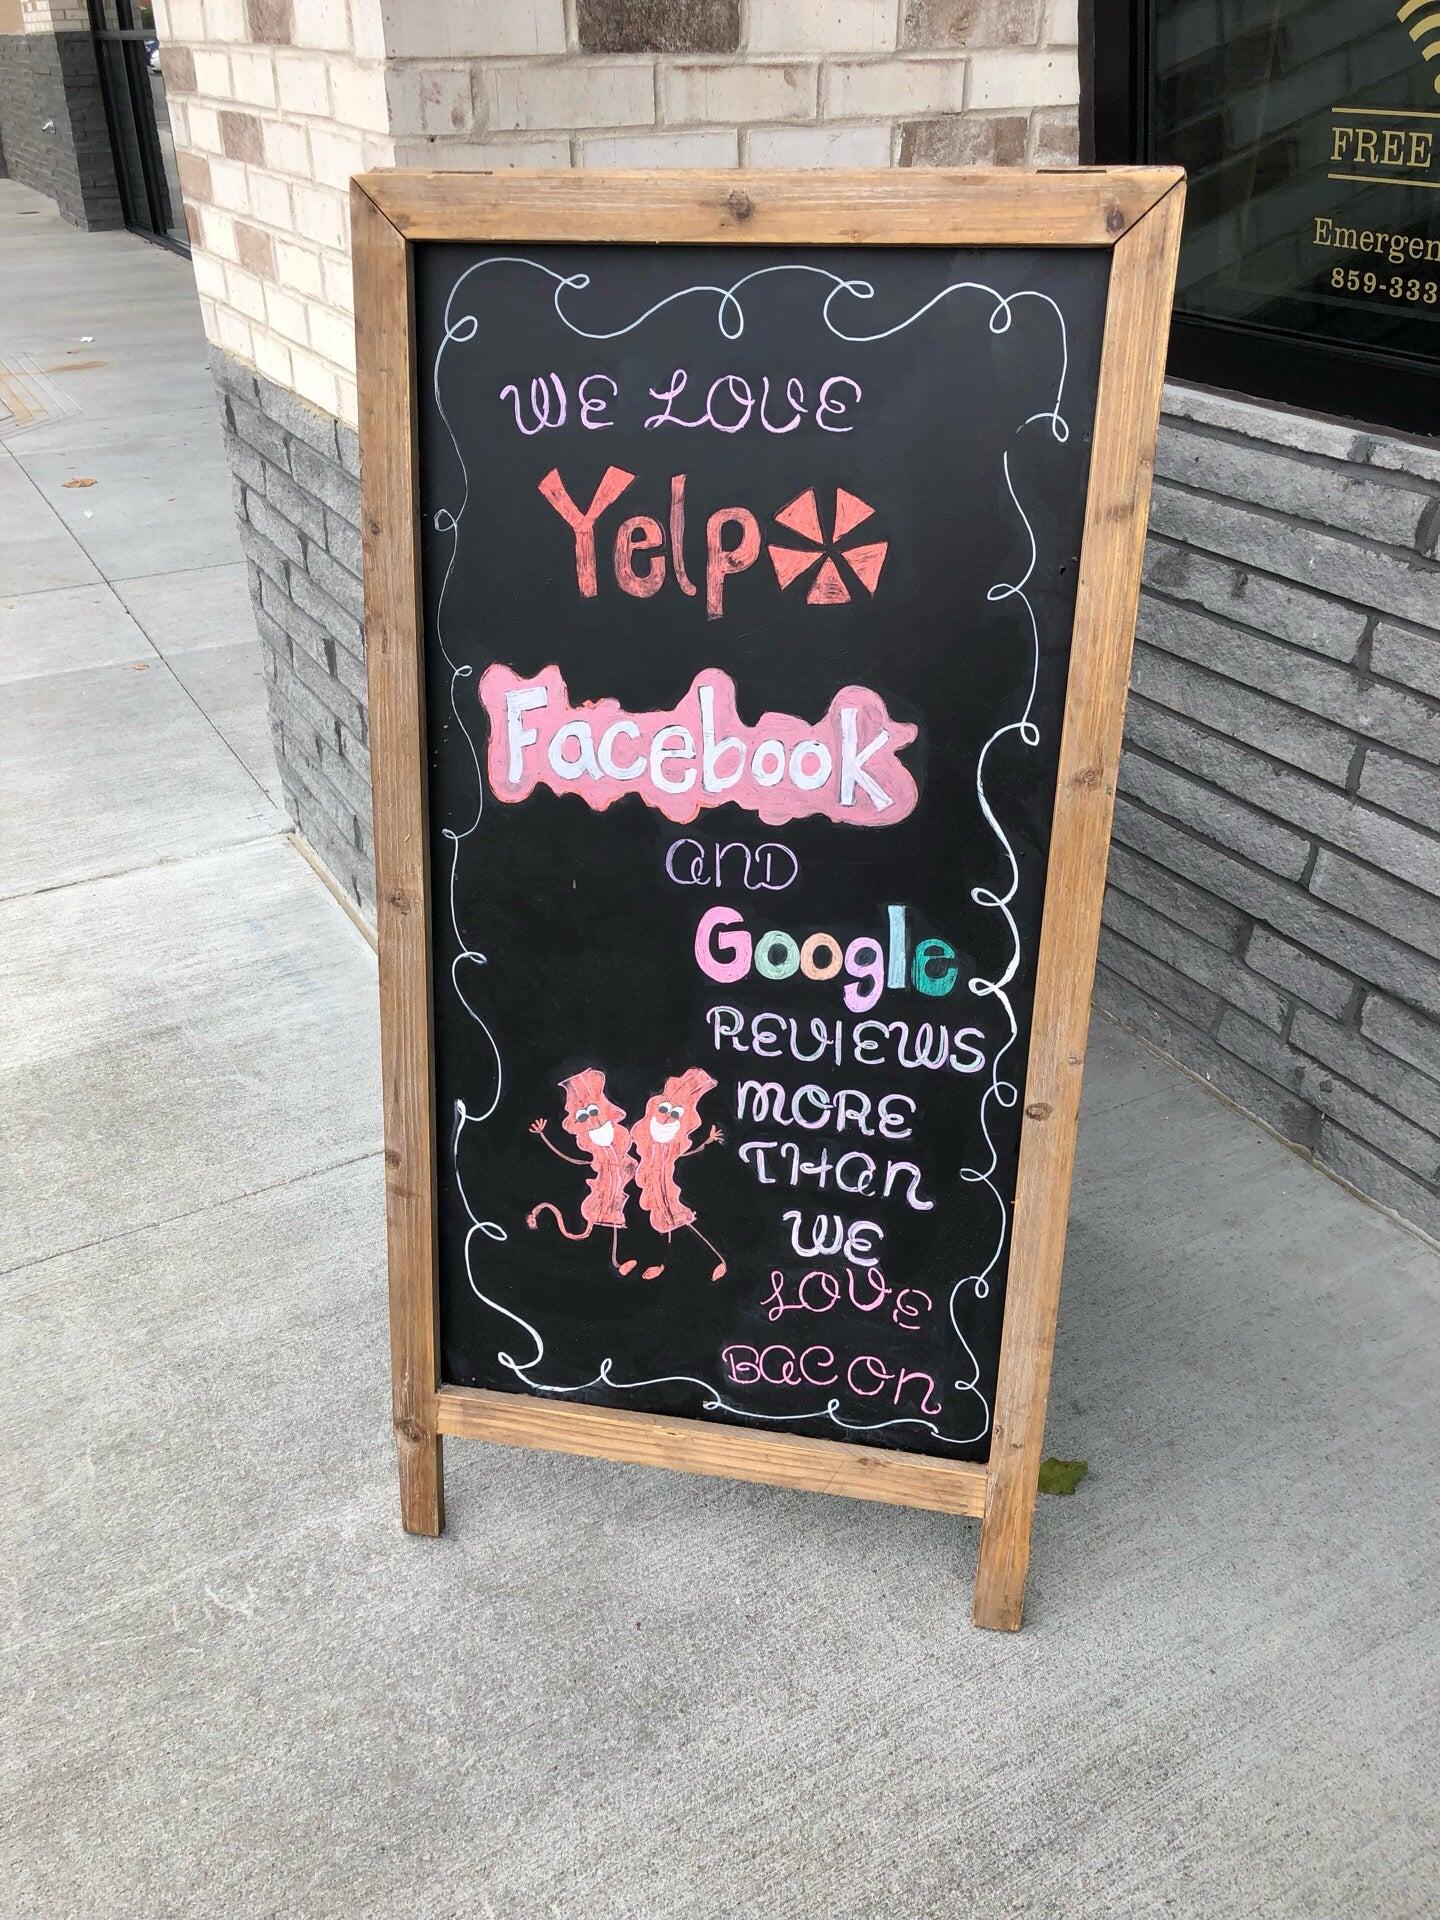 WE LOVE
Yelp
Facebook
and
Google
REVIEWS
MORE
THan
WE
LOVE
BaCon
FREE
859-333